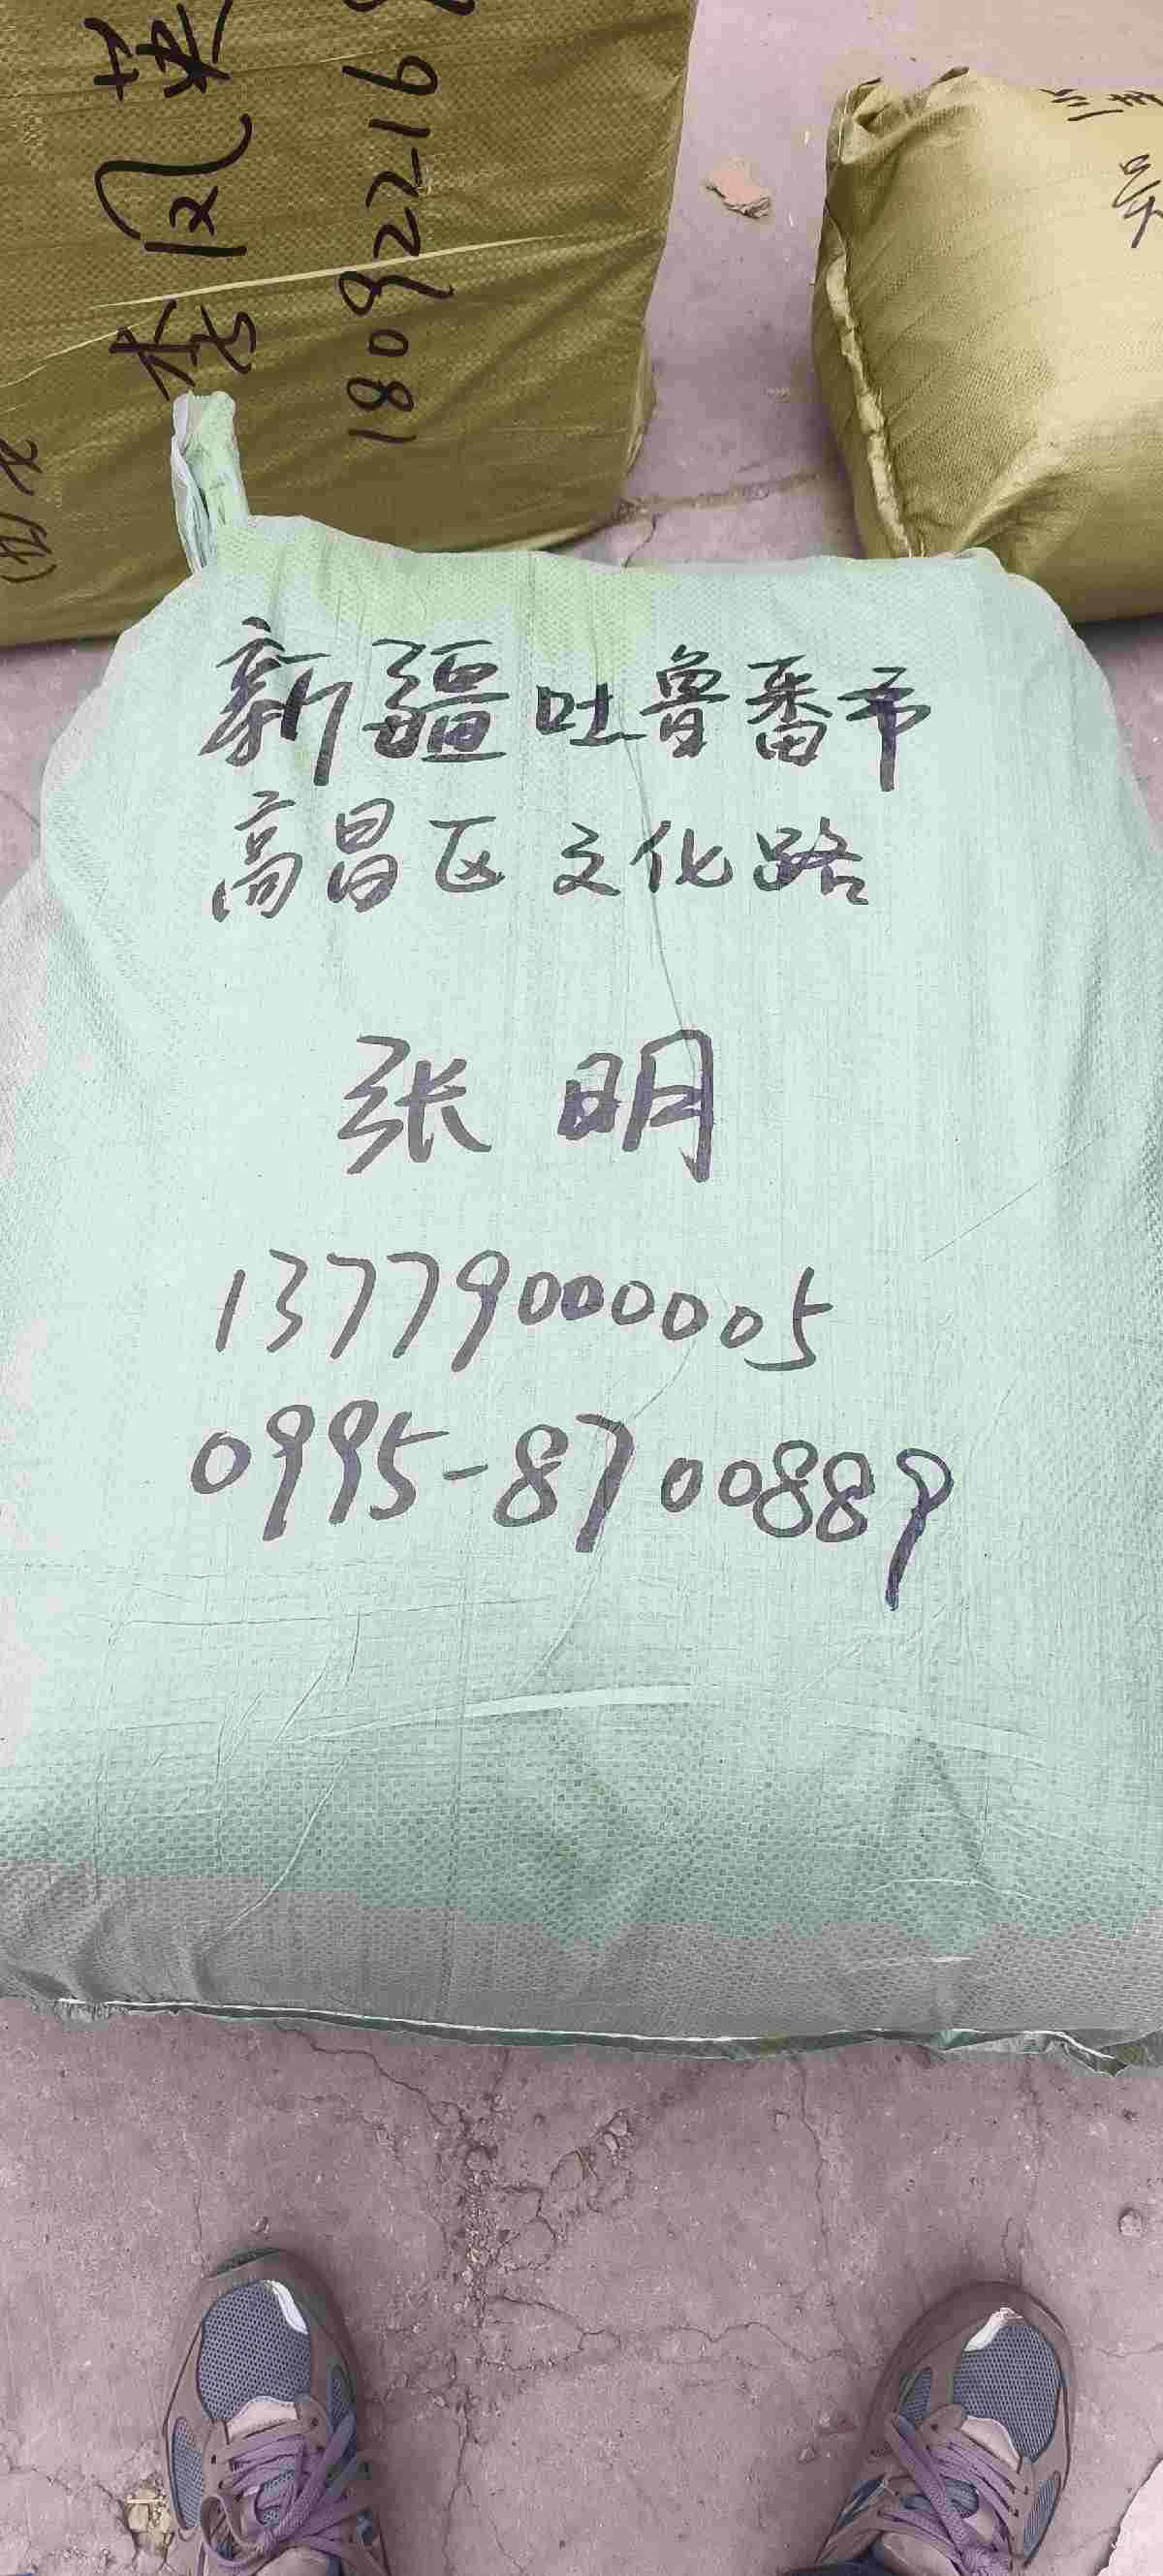 新疆吐鲁番市
高昌区文化路
张明
13779000005
0995-8700889
李凤英
18092216